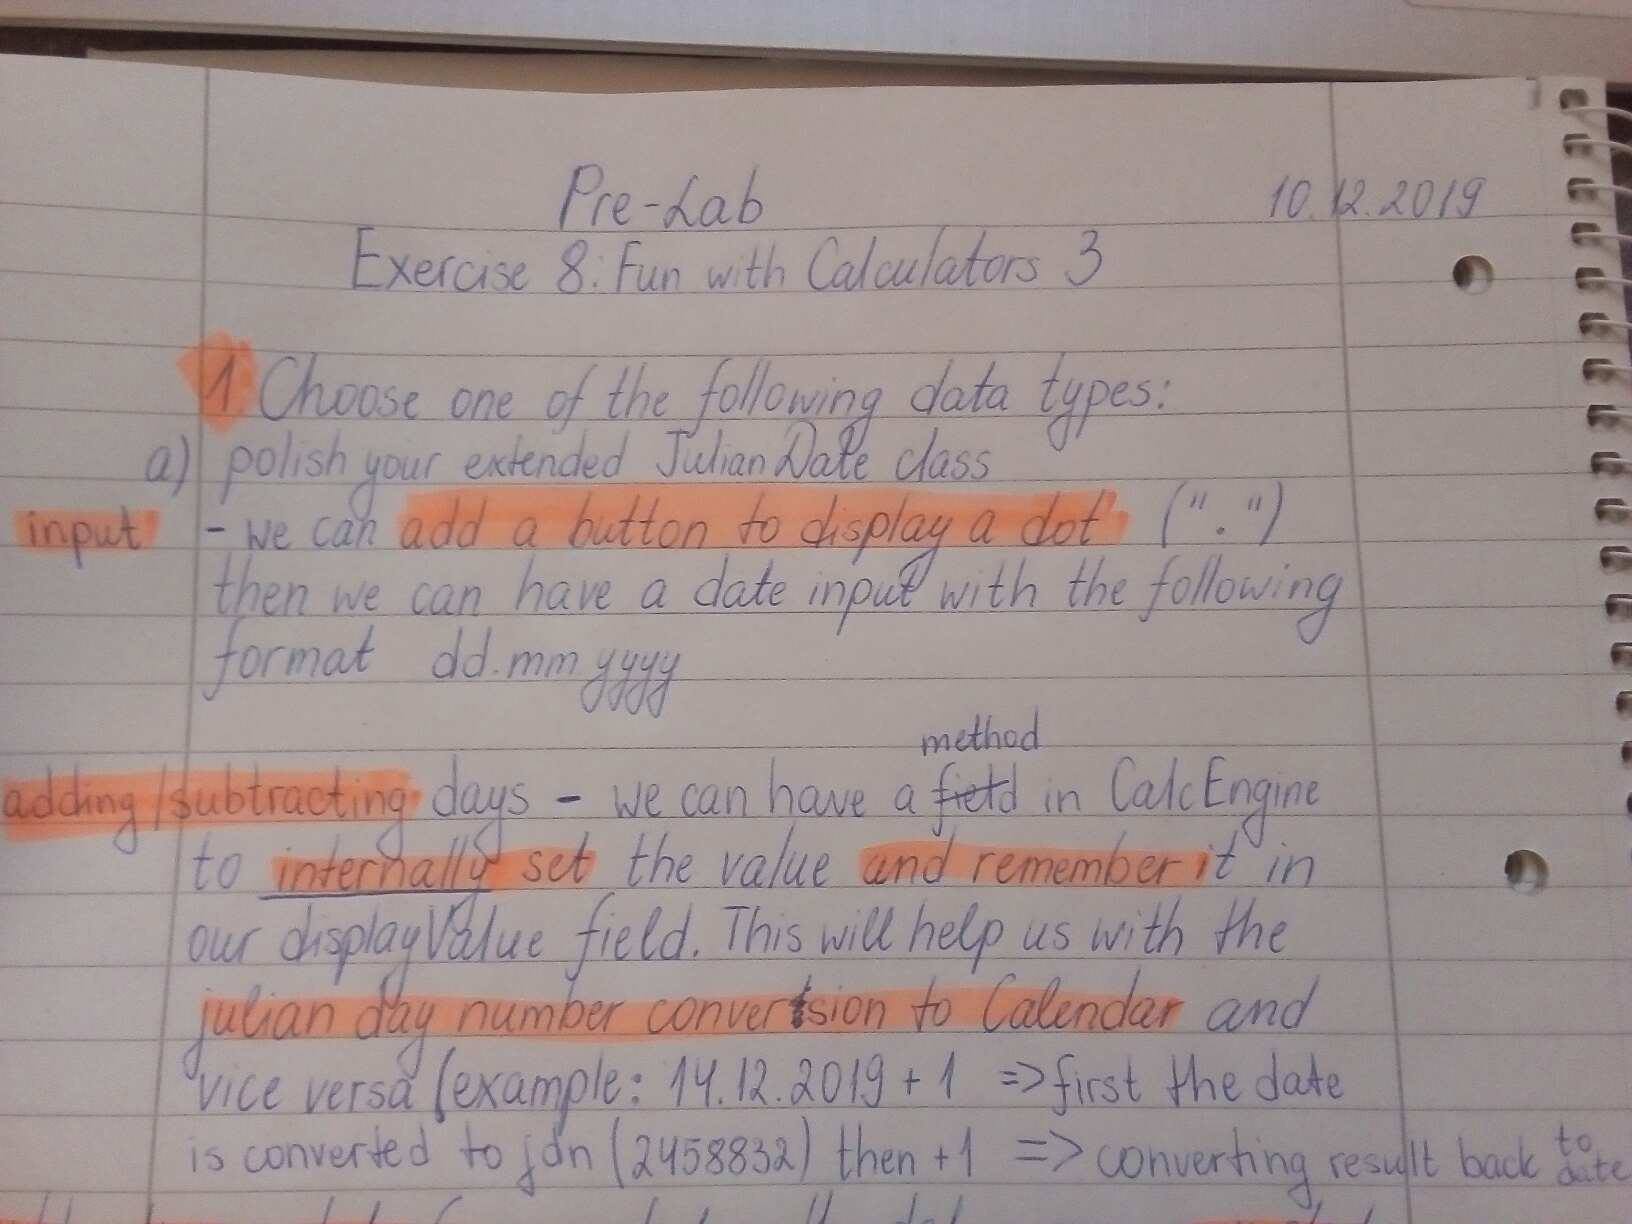 Pre-Lab
10.12.2019
Exercise 8: Fun with Calculators 3
1 Choose one of the following data types:
a) polish your extended JulianDate class
input - we can add a button to display a dot (".")
then we can have a date input with the following
format dd.mm yyyy
method
adding/subtracting days - we can have a field in CalcEngine
to internally set the value and remember it in
our displayValue field. This will help us with the
julian day number conversion to Calendar and
vice versa (example: 14.12.2019 + 1 => first the date
is converted to jdn (2458832) then +1 => converting result back to date